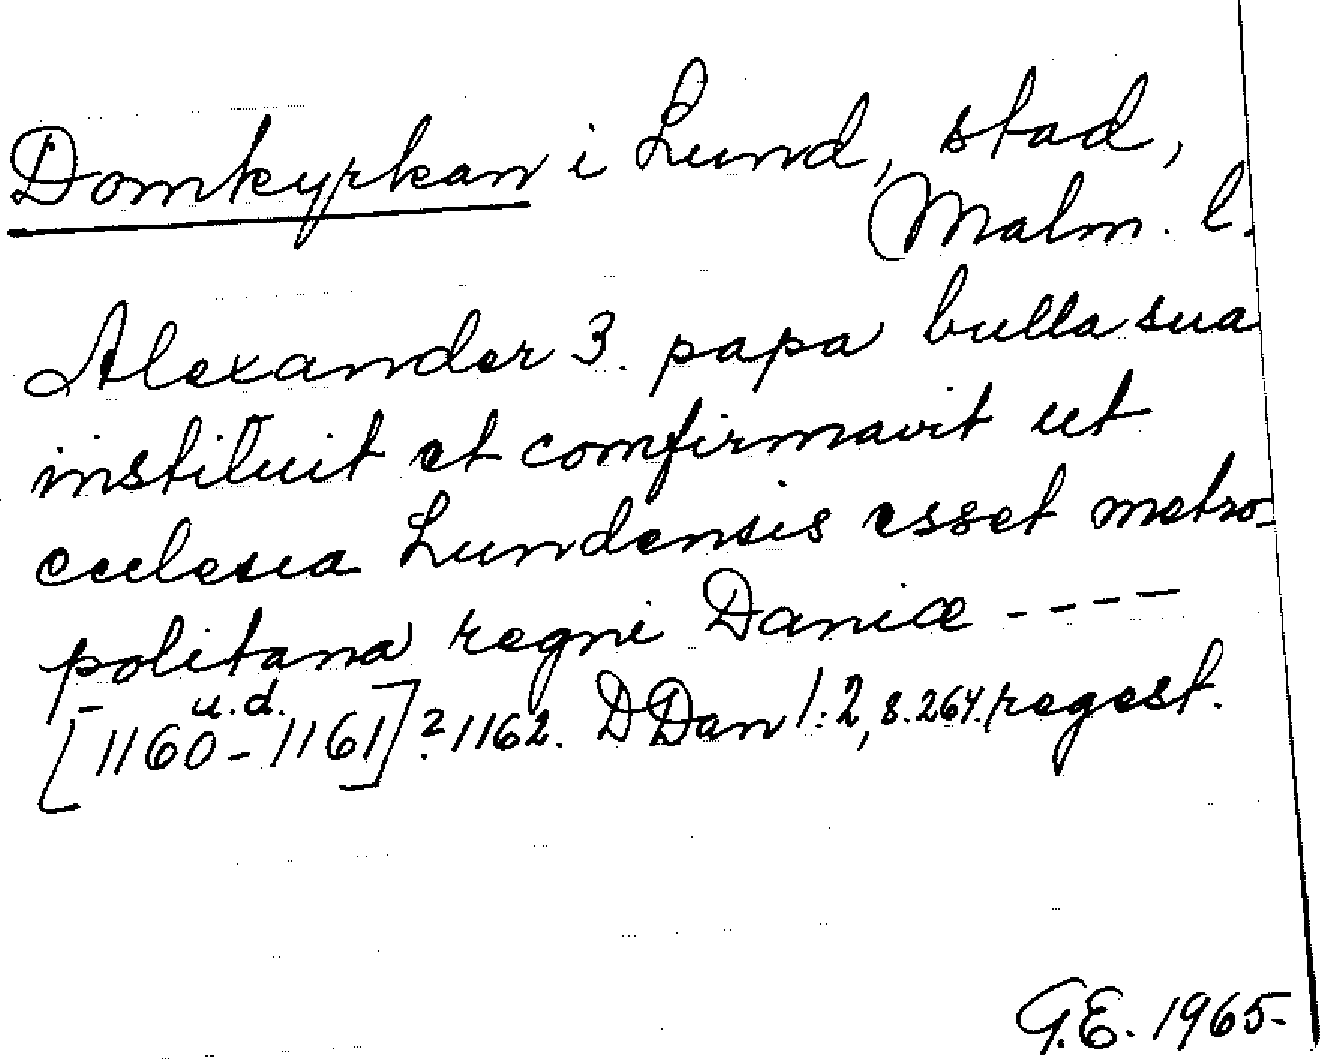 Domkyrkan i Lund, stad,
Malm. l.
Alexander 3. papa bulla sua
instituit et confirmavit ut
ecclesia Lundensis esset metro-
politana regni Daniæ ----
u.d.
[1160-1161]? 1162. DDan 1:2, s.264. regest.
G.E. 1965-